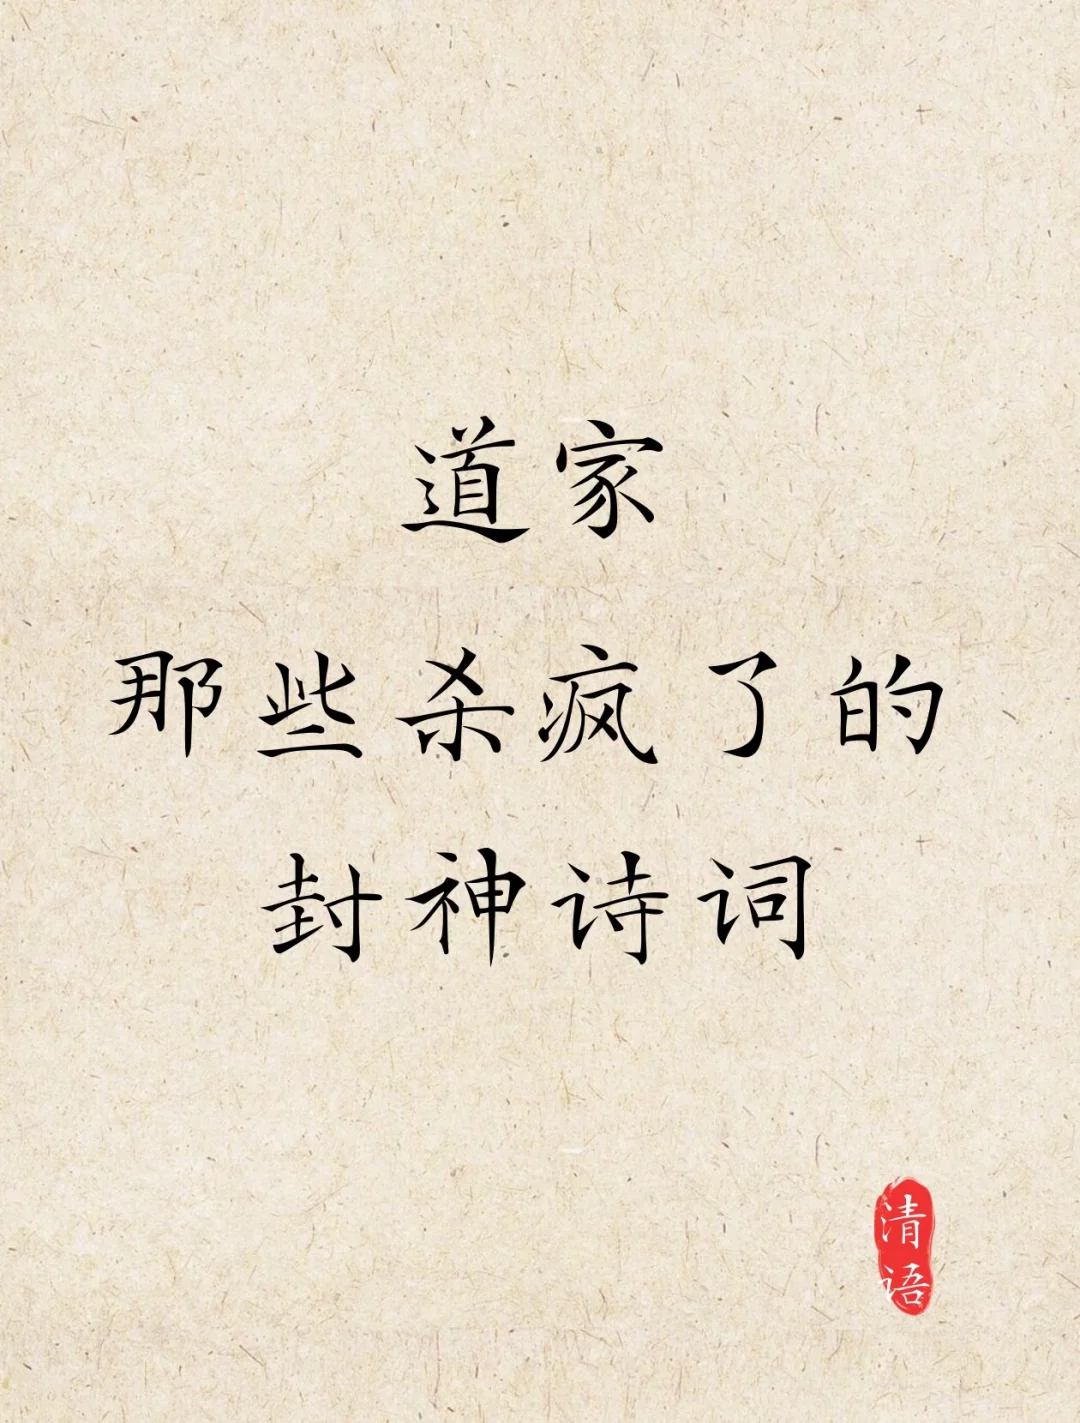 道家
那些杀疯了的
封神诗词
清语